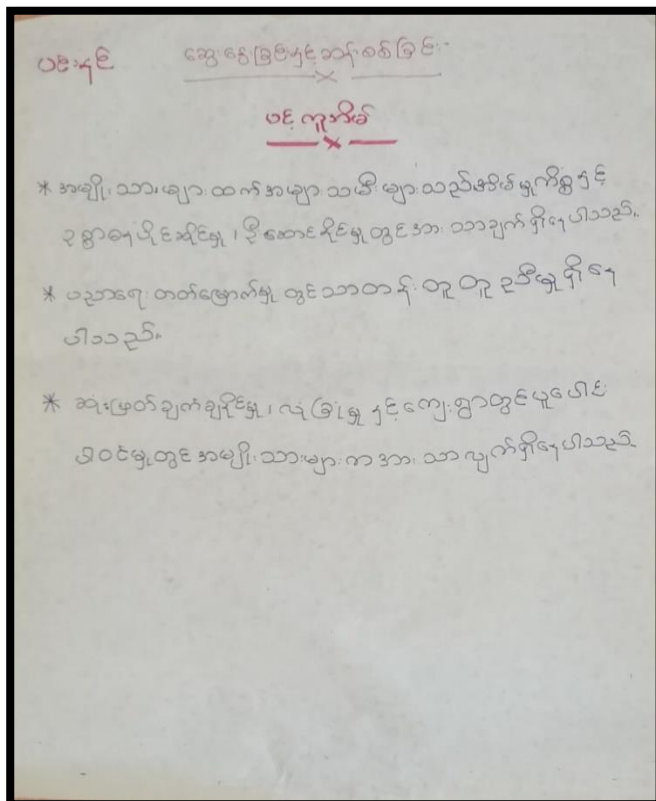 ပင်းနင် ဆွေးနွေးခြင်းနှင့်ဆန်းစစ်ခြင်း-
ပင့်ကူအိမ်
* အမျိုးသားများထက်အမျာသမီးများသည်အိမ်မှုကိစ္စနှင့်
ဥစ္စာဓနပိုင်ဆိုင်မှု၊ ဦးဆောင်နိုင်မှုတွင်အားသာချက်ရှိနေပါသည်။
* ပညာရေးတတ်မြောက်မှုတွင်သာတန်းတူတူညီမှုရှိနေ
ပါသည်။
* ဆုံးဖြတ်ချက်ချနိုင်မှု၊ လုံခြုံမှုနှင့်ကျေးရွာတွင်ပူးပေါင်း
ပါဝင်မှုတွင်အမျိုးသားများကအားသာလျက်ရှိနေပါသည်